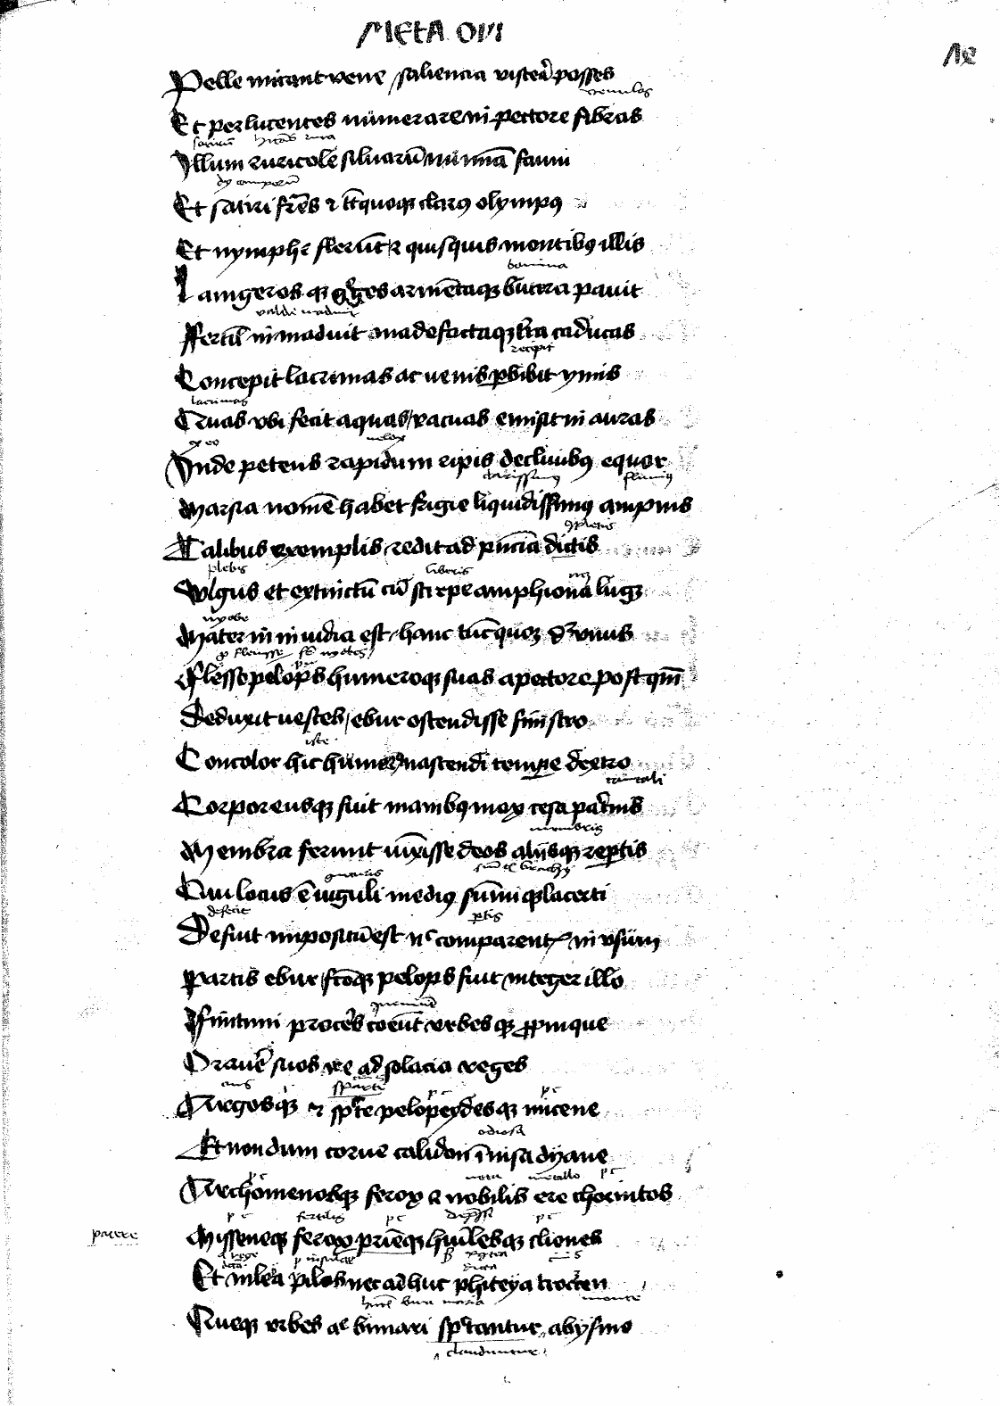 META OVI
Pelle micant vene saliencia viscera posses
Et perlucentes numerare in pectore fibras
Illum ruricole silvarum numina fauni
Et satiri fres et tunc quoque clarus olympus
Et nymphe flerunt et quisquis montibus illis
Lanigerosque greges armentaque bucera pavit
Fertil inmaduit madefactaque terra caducas
recepit
Concepit lacrimas ac venis perbibit ymis
lacrimas
Quas ubi fecit aquas vacuas emisit in auras
velox
Inde petens rapidum ripis declivibus equor
Marsia nomen habet frigie liquidissimus ampnis
Talibus exemplis redit ad presencia dictis
plebs liberis
Vulgus et extinctum cum stirpe amphiona luget
nyobe
Mater in invidia est hanc tunc quoque dicitur unus
Flesse pelops humeroque suas a pectore postquam
Deduxit vestes ebur ostendisse sinistro
iste
Concolor hic humerus nascendi tempore dextro
tantali
Corporeusque fuit manibus mox cesa paternis
membris
Membra ferunt iunxisse deos aliisque repertis
Qui locus est iuguli medius summique lacerti
deficit ptis
Defuit impositum est non comparentis in usum
Partis ebur factoque pelops fuit integer illo
Finitimi proceres coeunt urbesque propinque
Oravere suos ire ad solacia reges
Argosque et sparte pelopeydesque micene
odiosa
Et nondum torve calidon invisa dyane
metallo
Archomenosque ferox et nobilis ere chorintos
fertilis
Misseneque ferox prieque humilesque cliones
patre
Et nilea pilos nec adhuc phiteya trocen
Queque urbes alie bimari spectantur abysmo
clauduntur